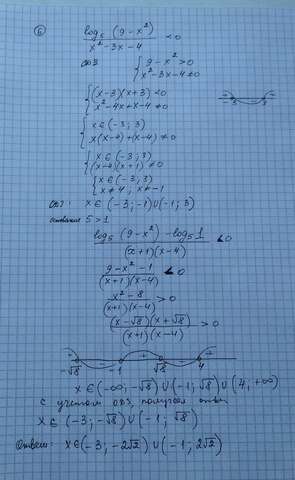 ⑥ log₅ (9 - x²) / (x² - 3x - 4) < 0
ОДЗ { 9 - x² > 0
{ x² - 3x - 4 ≠ 0
{ (x - 3)(x + 3) < 0
{ x² - 4x + x - 4 ≠ 0
+ - +
-3 3
{ x ∈ (-3; 3)
{ x(x - 4) + (x - 4) ≠ 0
{ x ∈ (-3; 3)
{ (x - 4)(x + 1) ≠ 0
{ x ∈ (-3; 3)
{ x ≠ 4; x ≠ -1
ОДЗ: x ∈ (-3; -1) ∪ (-1; 3)
основание 5 > 1
(log₅ (9 - x²) - log₅ 1) / ((x + 1)(x - 4)) < 0
(9 - x² - 1) / ((x + 1)(x - 4)) < 0
(x² - 8) / ((x + 1)(x - 4)) > 0
((x - √8)(x + √8)) / ((x + 1)(x - 4)) > 0
+ - + - +
-√8 -1 √8 4
x ∈ (-∞; -√8) ∪ (-1; √8) ∪ (4; +∞)
с учетом ОДЗ, получаем ответ
x ∈ (-3; -√8) ∪ (-1; √8)
Ответ: x ∈ (-3; -2√2) ∪ (-1; 2√2)